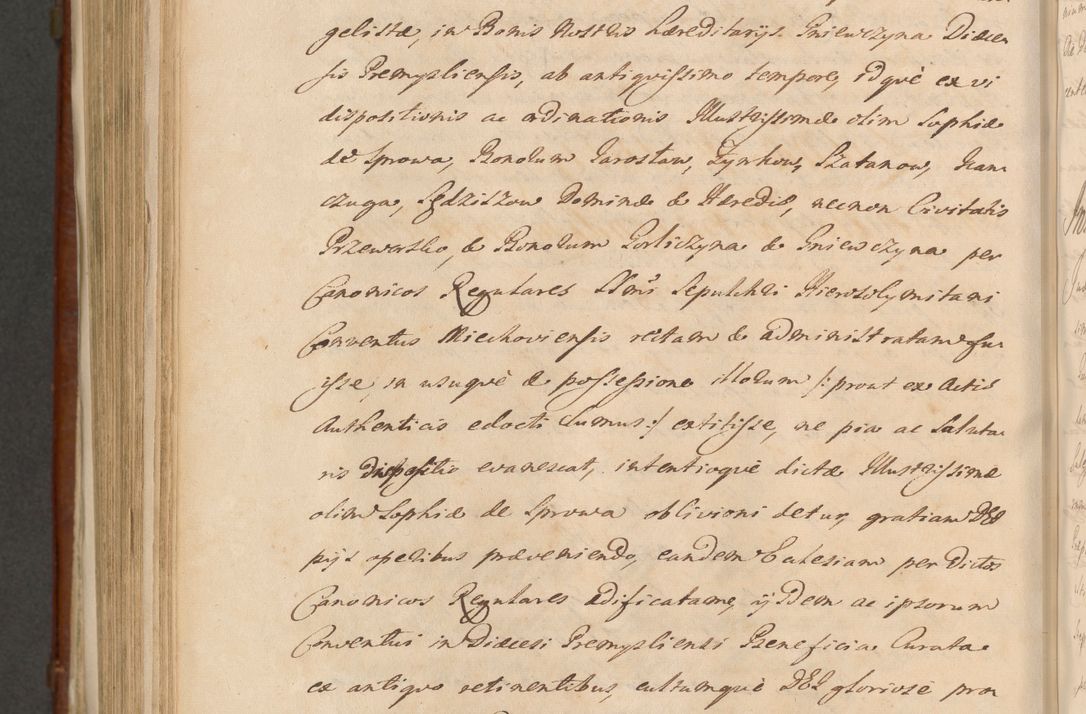 gelistæ, in Bonis Nostris hæreditarijs Gniewczyna Diæce-
sis Premysliensis, ab antiquissimo tempore, idquè ex vi
dispositionis ac ordinationis Illustrissimæ olim Sophiæ
de Sprowa, Bonorum Jarosław, Szatanow, Kan-
czuga, Sędziszow Dominæ & Hæredis, necnon Civitatis
Przeworsko, & Bonorum Gorliczyna & Gniewczyna per
Canonicos Regulares SSmi Sepulchri Hierosolymitani
Conventus Miechoviensis rectam & administratam fu-
isse, in usuquè & possessione illorum /: prout ex Actis
Authenticis edocti sumus :/ extitisse, ne pia ac saluta-
ris dispositio evanescat, intentioquè dictæ Illustrissimæ
olim Sophiæ de Sprowa oblivioni detur, gratiam DEI
pijs operibus præveniendo, eandem Ecclesiam per dictos
Canonicos Regulares ædificatam, ijsdem ac ipsorum
Conventui in Diæcesi Premysliensi Beneficia Curata
ex antiquo retinentibus, cultumquè DEI gloriosè pro-